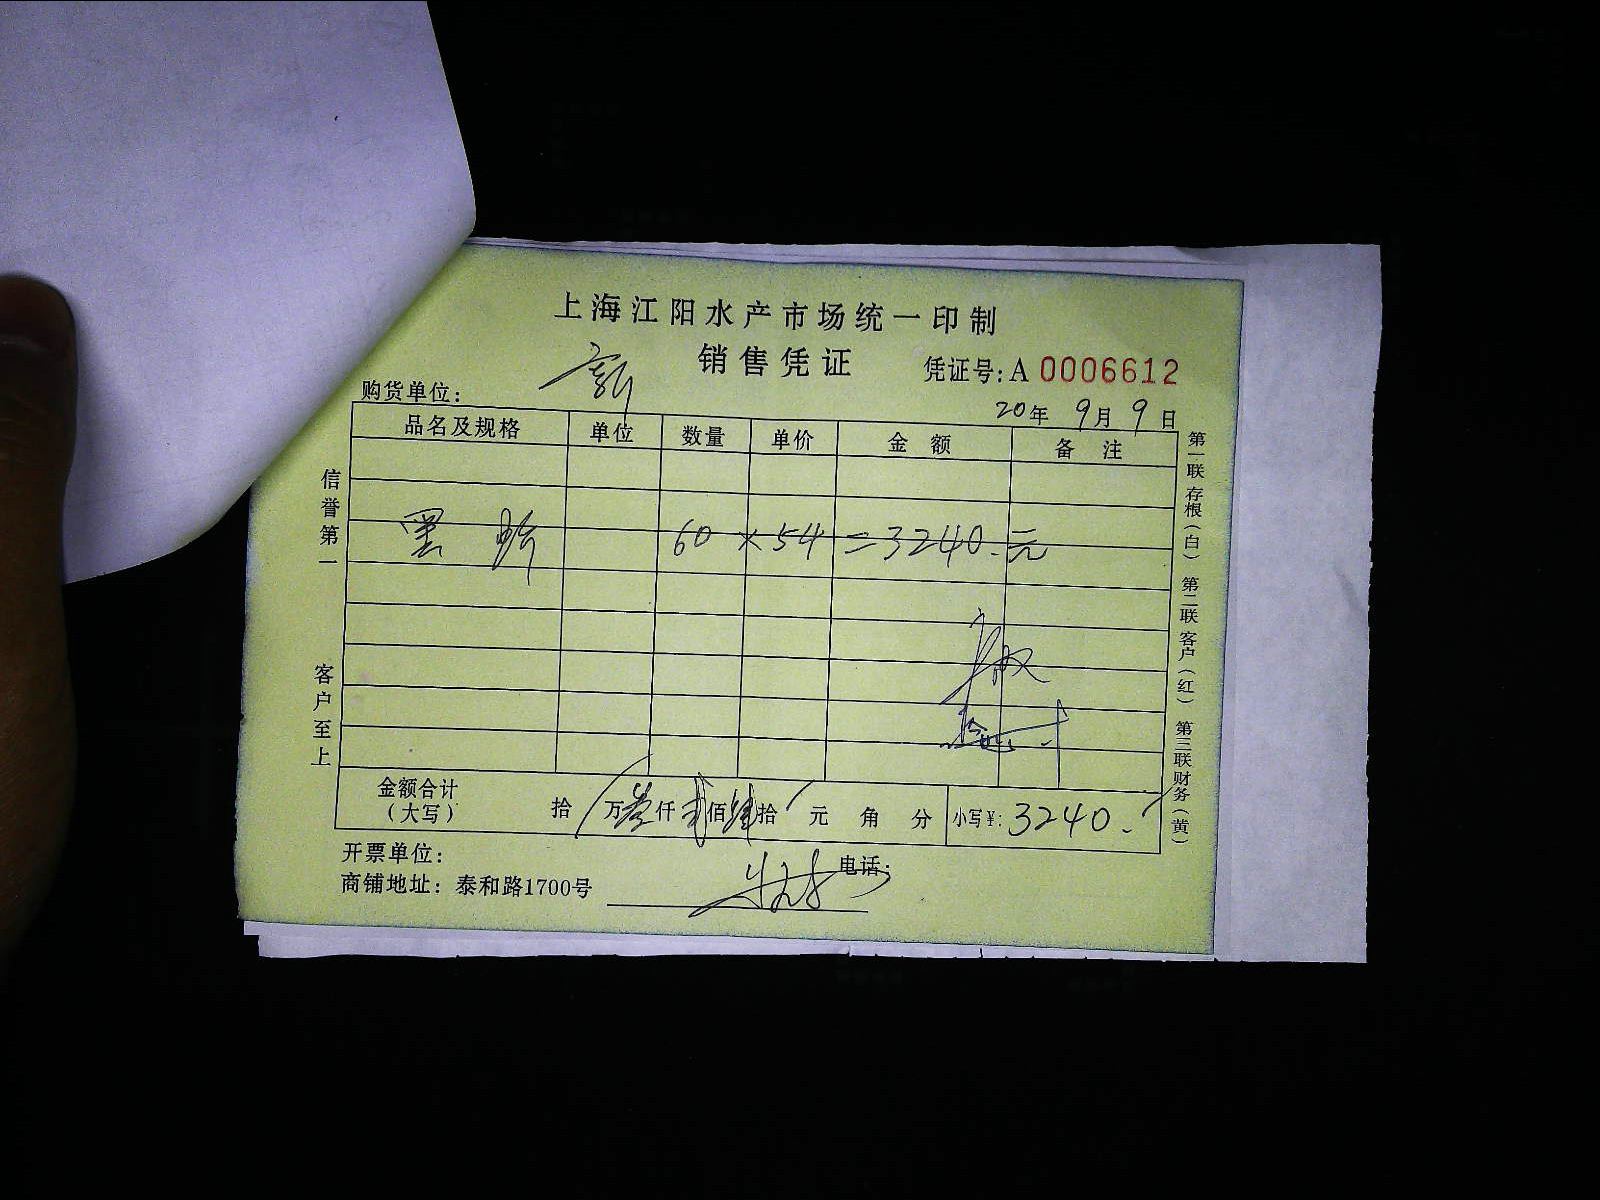 上海江阳水产市场统一印制
销售凭证
凭证号:A 0006612
购货单位:
20年 9月 9日
品名及规格 单位 数量 单价 金额 备注
黑 60 × 54 = 3240.元
金额合计
(大写)
拾 万叁仟贰佰肆拾 元 角 分 小写¥: 3240.
开票单位:
电话:
商铺地址: 泰和路1700号
信誉第一 客户至上
第一联 存根(白) 第二联 客户(红) 第三联 财务(黄)